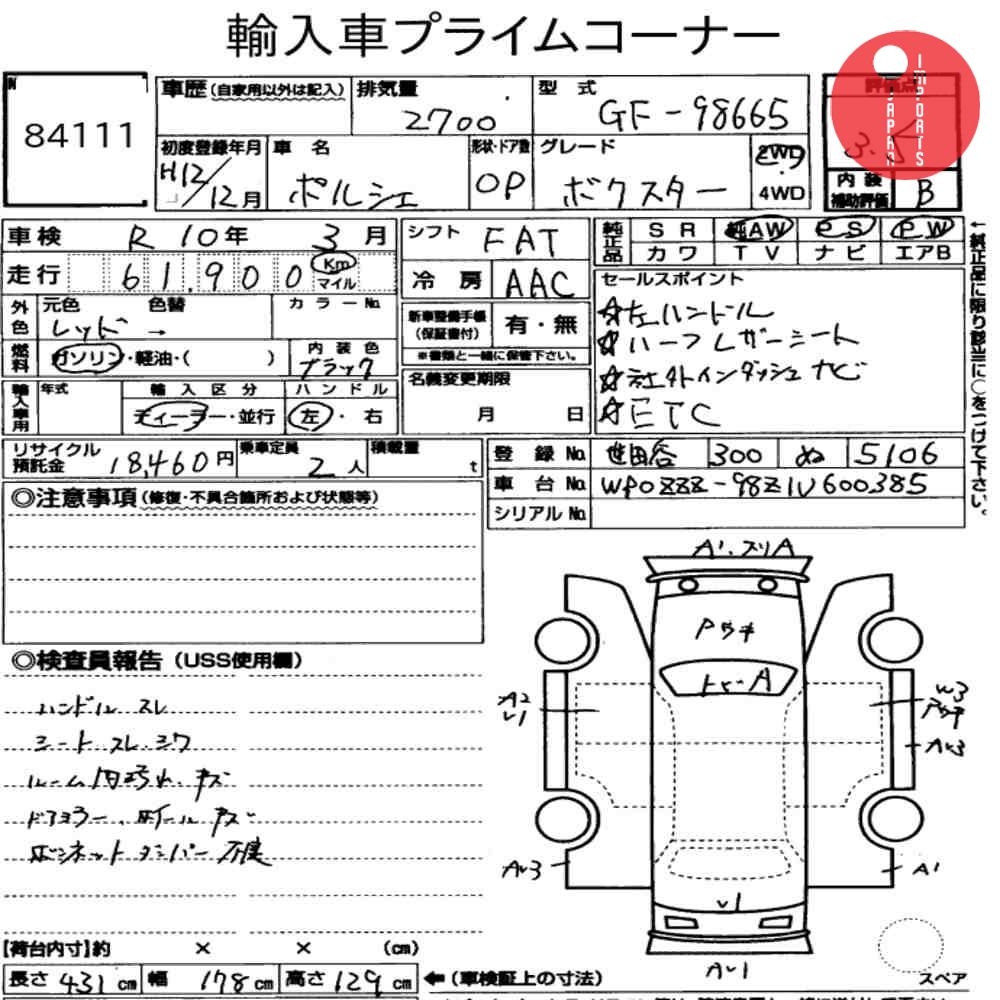 輸入車プライムコーナー
JAPAN IMPORTS
84111
車歴(自家用以外は記入) 排気量 2700 型式 GF-98665 評価点 3.5
初度登録年月 H12/12月 車名 ポルシェ 形状・ドア数 OP グレード ボクスター 2WD 4WD 内装補助評価 B
車検 R 10年 3月 シフト FAT 純正品 SR 純AW PS PW
カワ TV ナビ エアB
走行 61,900 Km マイル 冷房 AAC セールスポイント
外色 元色 レッド 色替 → カラーNo.
☆左ハンドル
☆ハーフレザーシート
☆社外インダッシュナビ
☆ETC
新車整備手帳(保証書付) 有・無
※書類と一緒に保管下さい。
燃料 ガソリン・軽油・( ) 内装色 ブラック
名義変更期限 月 日
輸入車用 年式 輸入区分 ディーラー・並行 ハンドル 左・右
←純正品に限り該当に○をつけて下さい。
リサイクル預託金 18,460円 乗車定員 2人 積載量 t
登録No. 世田谷 300 ぬ 5106
車台No. WP0ZZZ-98Z1U600385
シリアルNo.
◎注意事項(修復・不具合箇所および状態等)
◎検査員報告(USS使用欄)
ハンドル スレ
シート スレ・シワ
ルーム内汚れ、キズ
ドアミラー、ホイール キズ
ボンネットダンパー不良
A1.スリA
Pウキ
トビーA
A2
U1
W3
Pウキ
AU3
AU3
A1
U1
AU1
スペア
【荷台内寸】約 × × (cm)
長さ 431 cm 幅 178 cm 高さ 129 cm ←(車検証上の寸法)